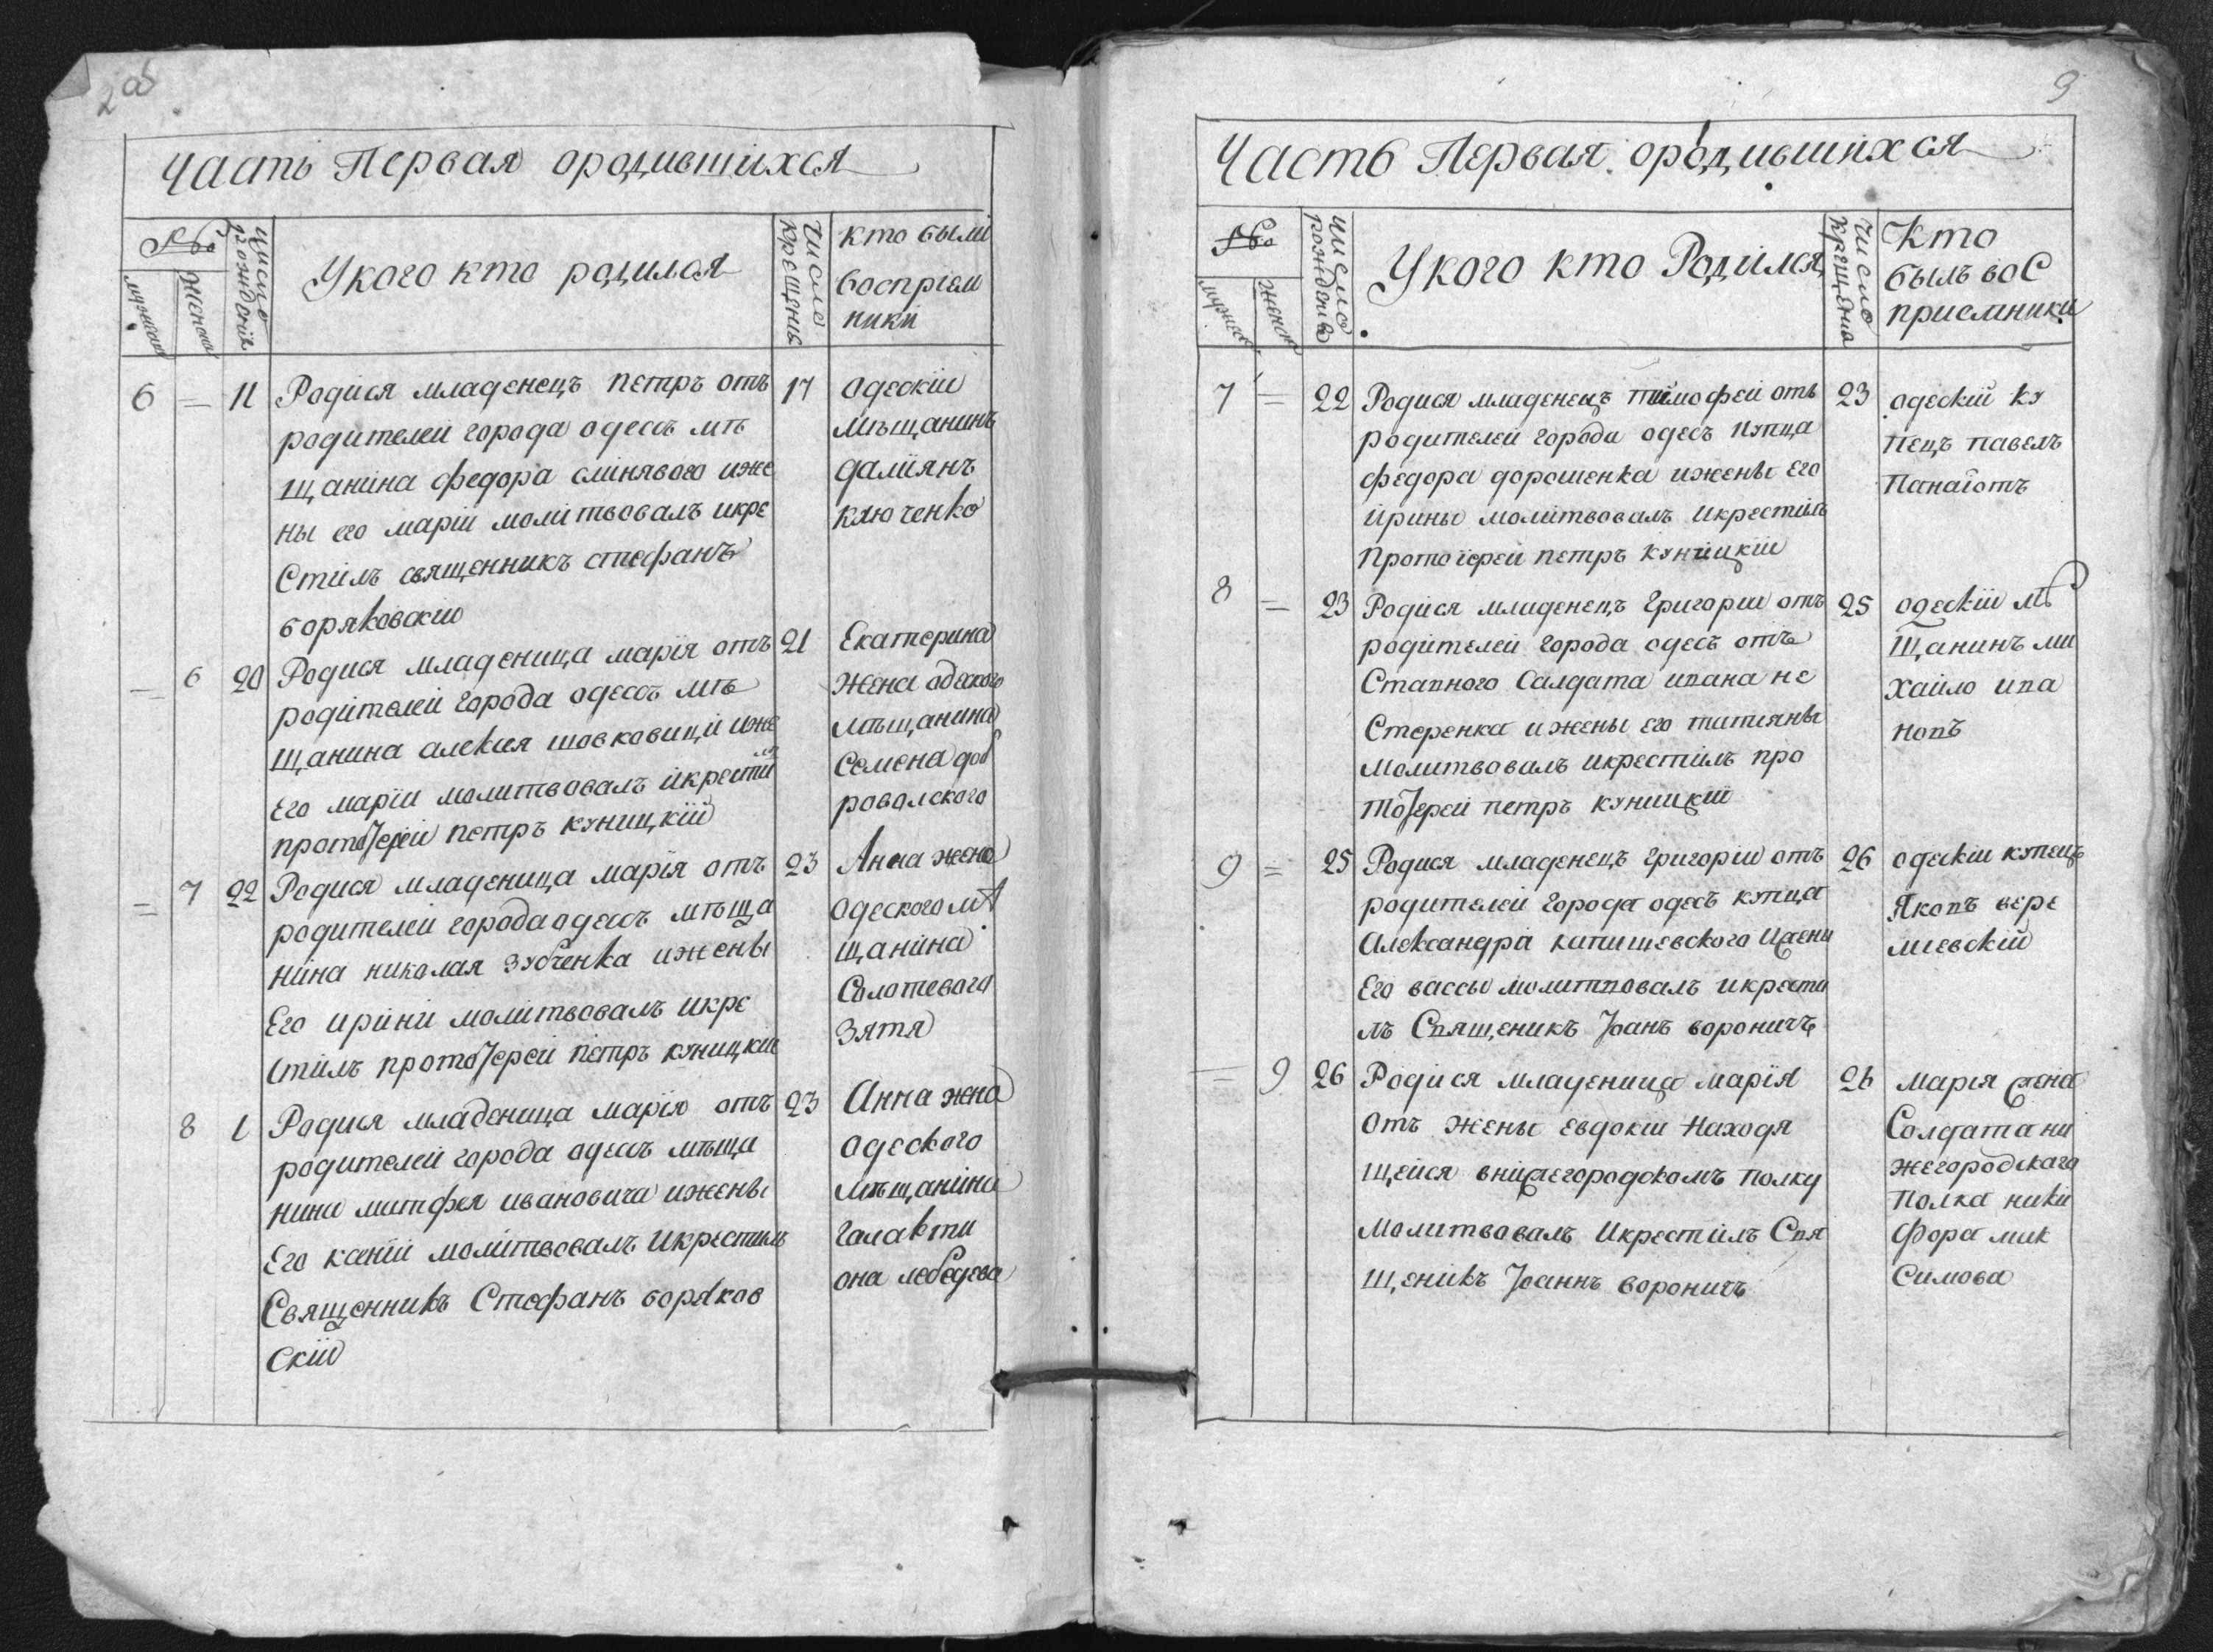 2об
Часть Первая ородившихся
№
мужеска
женска
число рождения
Укого кто родился
Число крещения
кто были
восприем
ники
6 = 11 Родися младенецъ петръ отъ 17
родителей города одессъ мѣ
щанина федора слинявого иже
ны его маріи молитвовалъ икре
Стилъ священникъ стефанъ
боряковскій
одескій
мѣщанинъ
даміянъ
ключенко
= 6 20 Родися младеница марія отъ 21
родителей города одессъ мѣ
щанина алексия шовковици иже
Его маріи молитвовалъ икрести
лъ
протоІерей петръ куницкій
Екатерина
жена одеского
мѣщанина
семена доб
ровалского
= 7 22 Родися младеница марія отъ 23
родителей города одессъ мѣща
нина николая зубченка ижены
Его ирини молитвовалъ икре
стилъ протоІерей петръ куницкій
Анна жена
одеского мѣ
щанина
Солотевага
зятя
8 1 Родися младеница марія отъ 23
родителей города одессъ мѣща
нина матфея ивановича ижены
Его ксеніи молитвовалъ икрестилъ
Священникъ Стефанъ боряков
скій
Анна жена
одеского
мѣщанина
галакти
она лебедева
9
Часть Первая ородившихся
№
мужеск
женск
Число рождения
Укого кто Родился
Число крещения
Кто
былъ вос
приемники
7 = 22 Родися младенецъ тимофей отъ 23
родителей города одесъ купца
федора дорошенка ижены его
ирины молитвовалъ икрестилъ
Протоіерей петръ куницкій
одескій ку
пецъ павелъ
Панаіотъ
8 = 23 Родися младенецъ григории отъ 25
родителей города одесъ отъ
Стапного Салдата ипана не
Стеренка ижены его татияны
Молитвовалъ икрестилъ про
тоІерей петръ куницкій
одескій мѣ
щанинъ ми
хайло ипа
нопъ
9 = 25 Родися младенецъ григорій отъ 26
родителей города одесъ купца
Александра капишевского ижени
Его вассы молитповалъ икрести
лъ Спященикъ Іоанъ вороничъ
одескій купецъ
Якопъ вере
миевскій
= 9 26 Родися младеница марія 26
Отъ жены евдокіи находя
щейся внижегородскомъ полку
Молитвовалъ Икрестилъ Спя
щеникъ Іоаннъ вороничъ
марія жена
Солдата ни
жегородскаго
полка ники
фора мак
симова